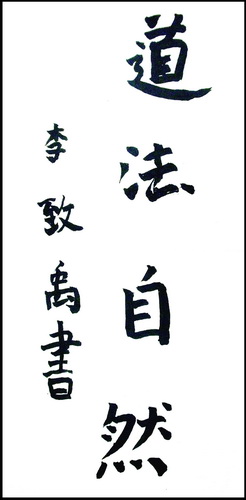 道法自然
李致禹書